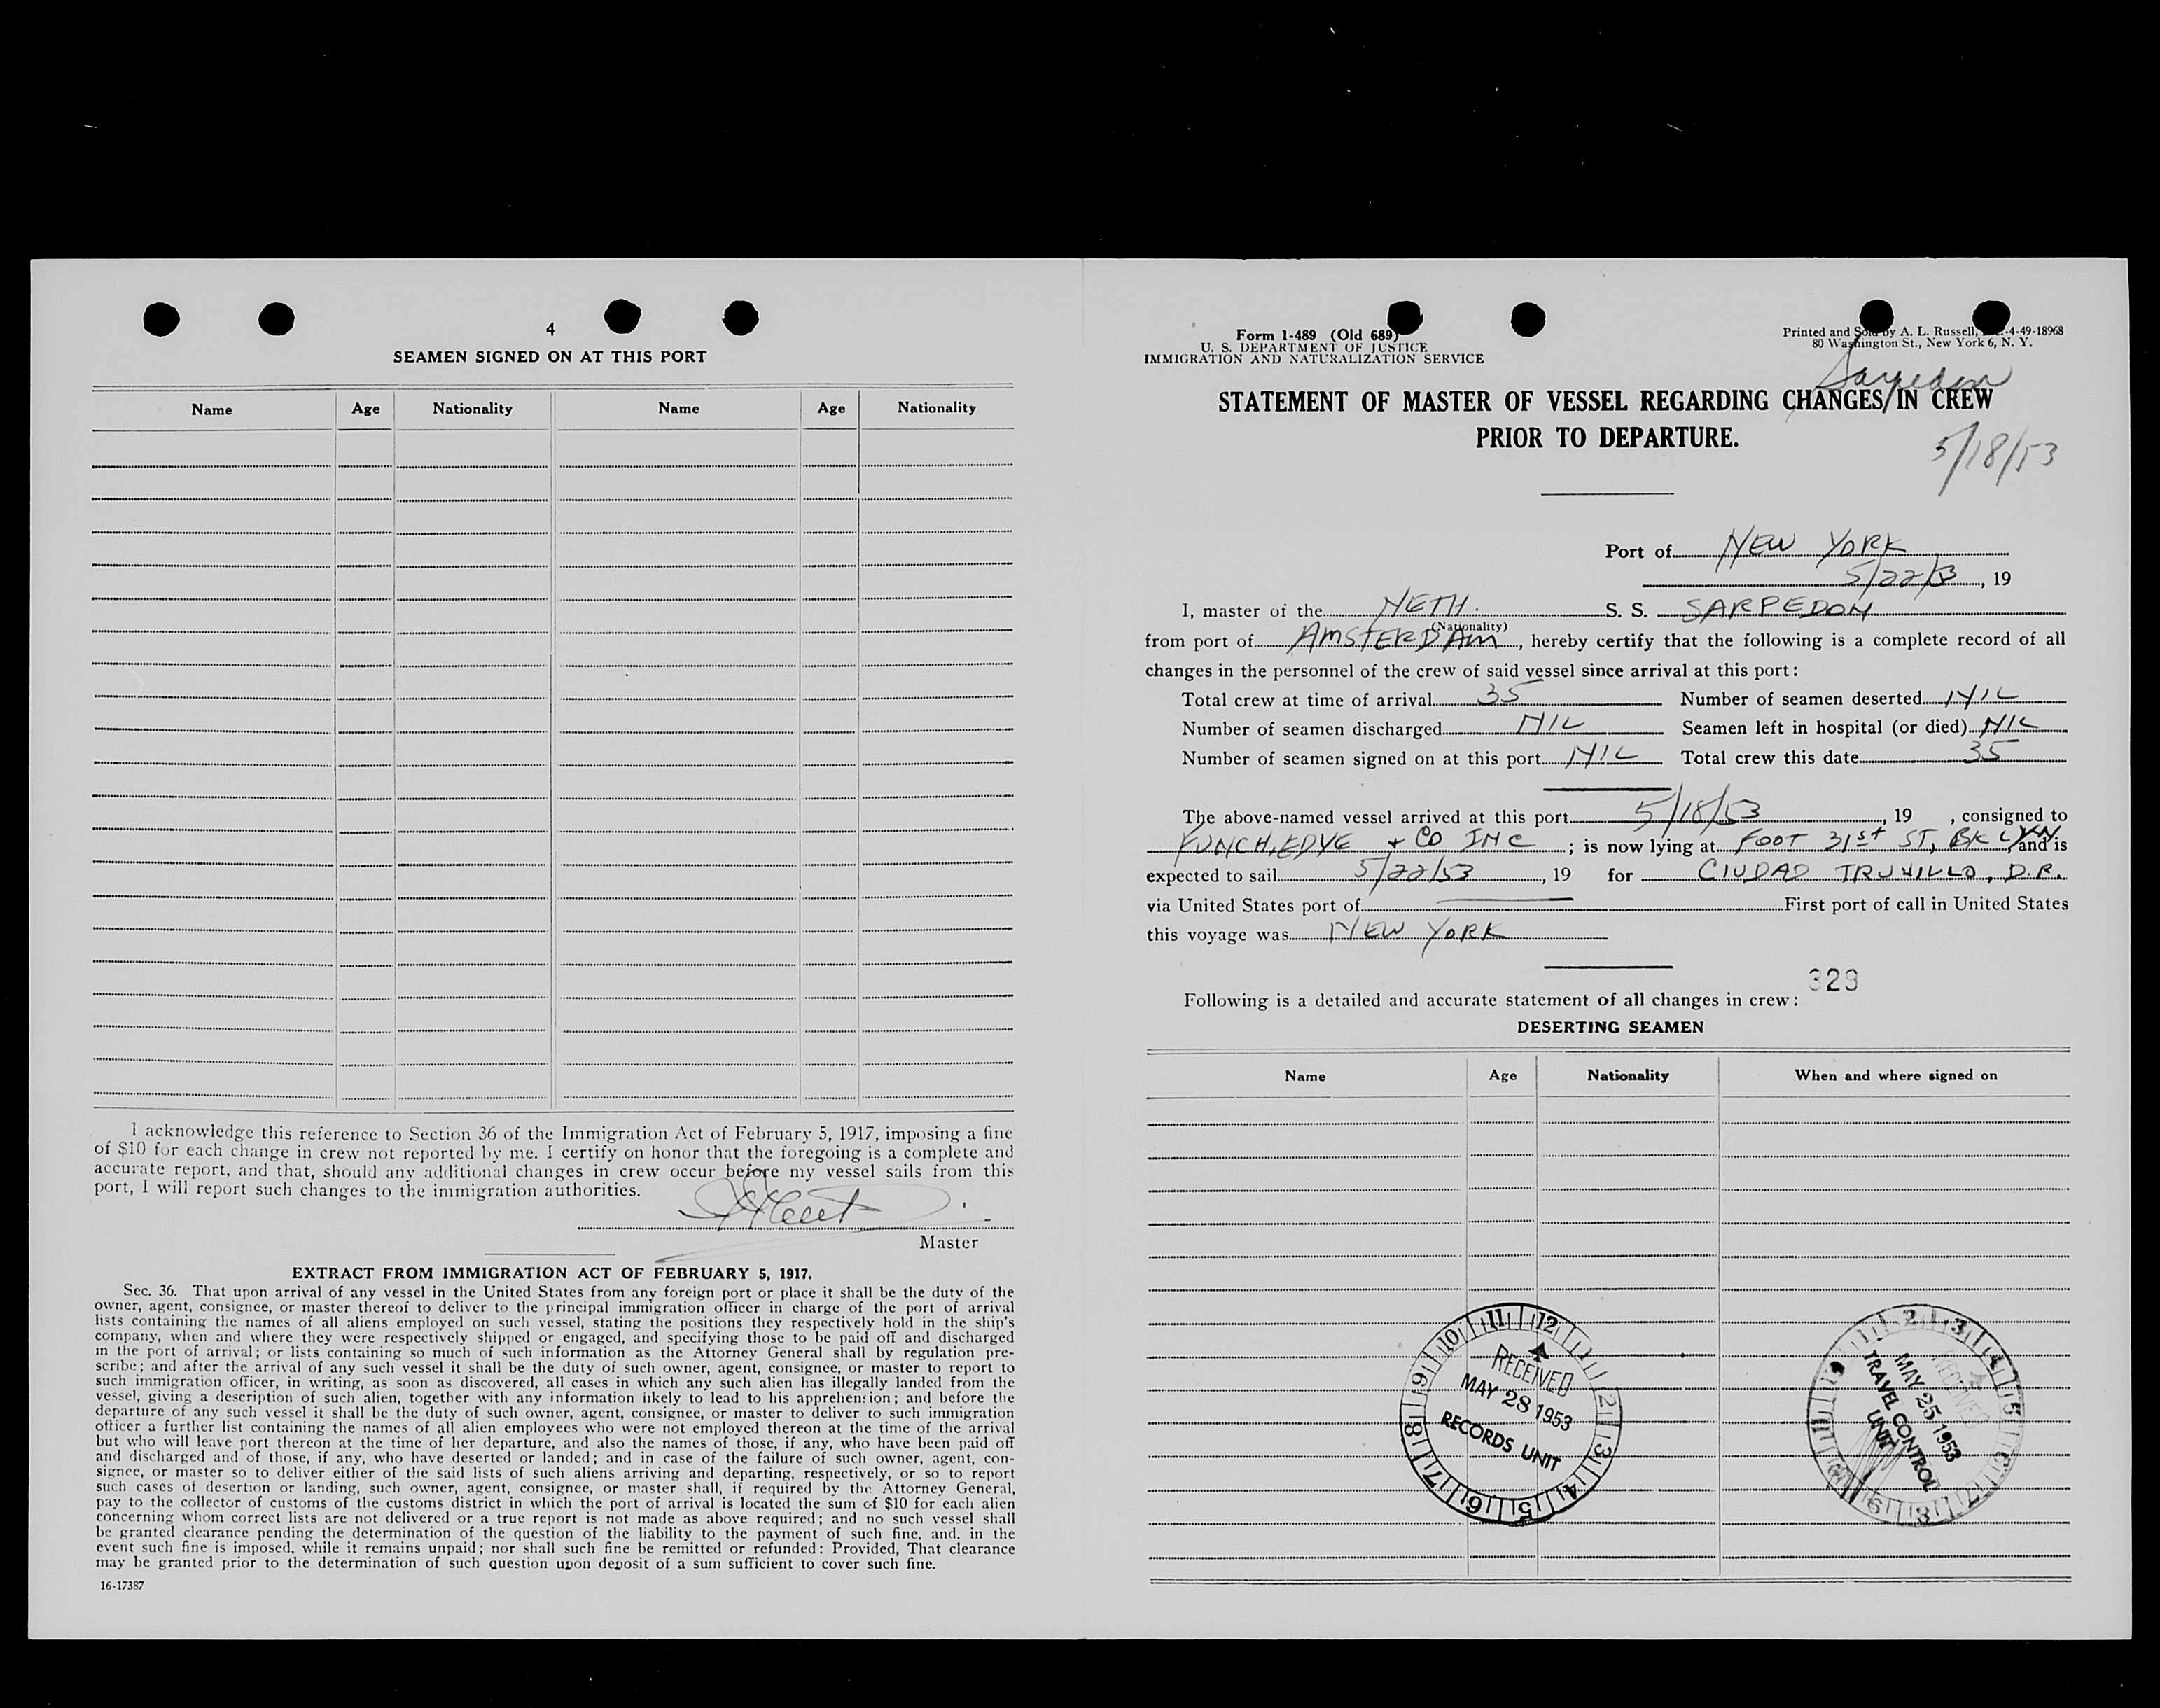 4
SEAMEN SIGNED ON AT THIS PORT
Name Age Nationality Name Age Nationality
I acknowledge this reference to Section 36 of the Immigration Act of February 5, 1917, imposing a fine
of $10 for each change in crew not reported by me. I certify on honor that the foregoing is a complete and
accurate report, and that, should any additional changes in crew occur before my vessel sails from this
port, I will report such changes to the immigration authorities.
Master
EXTRACT FROM IMMIGRATION ACT OF FEBRUARY 5, 1917.
Sec. 36. That upon arrival of any vessel in the United States from any foreign port or place it shall be the duty of the
owner, agent, consignee, or master thereof to deliver to the principal immigration officer in charge of the port of arrival
lists containing the names of all aliens employed on such vessel, stating the positions they respectively hold in the ship's
company, when and where they were respectively shipped or engaged, and specifying those to be paid off and discharged
in the port of arrival; or lists containing so much of such information as the Attorney General shall by regulation pre-
scribe; and after the arrival of any such vessel it shall be the duty of such owner, agent, consignee, or master to report to
such immigration officer, in writing, as soon as discovered, all cases in which any such alien has illegally landed from the
vessel, giving a description of such alien, together with any information likely to lead to his apprehension; and before the
departure of any such vessel it shall be the duty of such owner, agent, consignee, or master to deliver to such immigration
officer a further list containing the names of all alien employees who were not employed thereon at the time of the arrival
but who will leave port thereon at the time of her departure, and also the names of those, if any, who have been paid off
and discharged and of those, if any, who have deserted or landed; and in case of the failure of such owner, agent, con-
signee, or master so to deliver either of the said lists of such aliens arriving and departing, respectively, or so to report
such cases of desertion or landing, such owner, agent, consignee, or master shall, if required by the Attorney General,
pay to the collector of customs of the customs district in which the port of arrival is located the sum of $10 for each alien
concerning whom correct lists are not delivered or a true report is not made as above required; and no such vessel shall
be granted clearance pending the determination of the question of the liability to the payment of such fine, and, in the
event such fine is imposed, while it remains unpaid; nor shall such fine be remitted or refunded: Provided, That clearance
may be granted prior to the determination of such question upon deposit of a sum sufficient to cover such fine.
16-17387
Form 1-489 (Old 689)
U. S. DEPARTMENT OF JUSTICE
IMMIGRATION AND NATURALIZATION SERVICE
Printed and Sold by A. L. Russell, -4-49-18968
80 Washington St., New York 6, N. Y.
Sarpedon
STATEMENT OF MASTER OF VESSEL REGARDING CHANGES IN CREW
PRIOR TO DEPARTURE.
5/18/53
Port of NEW YORK
5/22/3, 19
I, master of the NETH. S. S. SARPEDON
(Nationality)
from port of AMSTERDAM, hereby certify that the following is a complete record of all
changes in the personnel of the crew of said vessel since arrival at this port:
Total crew at time of arrival 35 Number of seamen deserted NIL
Number of seamen discharged NIL Seamen left in hospital (or died) NIL
Number of seamen signed on at this port NIL Total crew this date 35
The above-named vessel arrived at this port 5/18/53, 19 , consigned to
FUNCH, EDYE + CO INC ; is now lying at FOOT 31st ST, BKLYN. and is
expected to sail 5/22/53, 19 for CIUDAD TRUJILLO, D.R.
via United States port of First port of call in United States
this voyage was NEW YORK
329
Following is a detailed and accurate statement of all changes in crew:
DESERTING SEAMEN
Name Age Nationality When and where signed on
10 11 12 1 2 3 4 5 6 7 8 9
RECEIVED
MAY 28 1953
RECORDS UNIT
RECEIVED
MAY 25 1953
TRAVEL CONTROL
UNIT